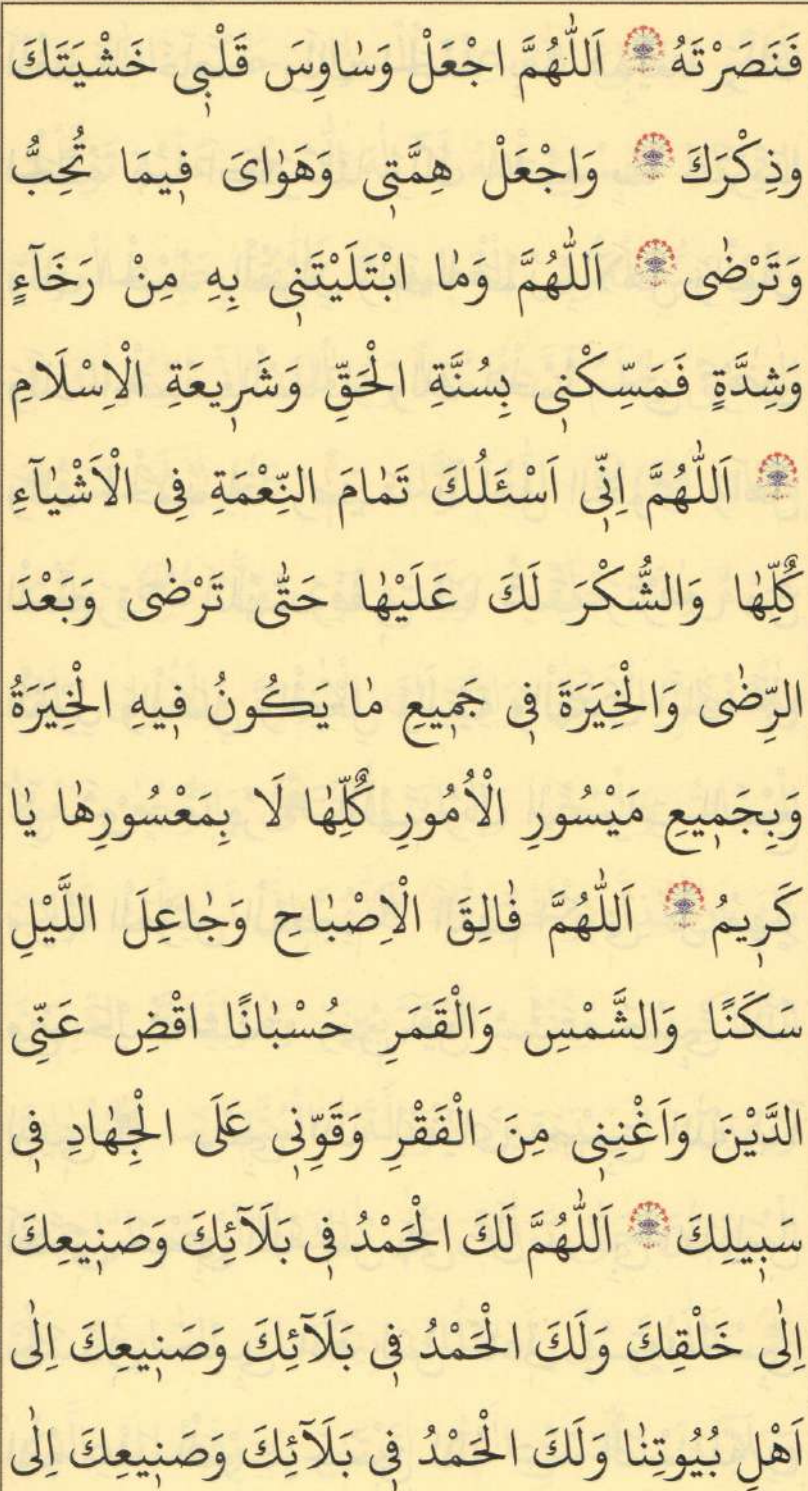 فَنَصَرْتَهُ اَللّٰهُمَّ اجْعَلْ وَسٰاوِسَ قَلْبٖى خَشْيَتَكَ
وذِكْرَكَ وَاجْعَلْ هِمَّتٖى وَهَوٰاىَ فٖيمَا تُحِبُّ
وَتَرْضٰى اَللّٰهُمَّ وَمٰا ابْتَلَيْتَنٖى بِهِ مِنْ رَخَآءٍ
وَشِدَّةٍ فَمَسِّكْنٖى بِسُنَّةِ الْحَقِّ وَشَرٖيعَةِ الْاِسْلَامِ
اَللّٰهُمَّ اِنّٖى اَسْئَلُكَ تَمٰامَ النِّعْمَةِ فِى الْاَشْيٰآءِ
كُلِّهٰا وَالشُّكْرَ لَكَ عَلَيْهٰا حَتّٰى تَرْضٰى وَبَعْدَ
الرِّضٰى وَالْخِيَرَةَ فٖى جَمٖيعِ مٰا يَكُونُ فٖيهِ الْخِيَرَةُ
وَبِجَمٖيعِ مَيْسُورِ الْاُمُورِ كُلِّهٰا لَا بِمَعْسُورِهٰا يٰا
كَرٖيمُ اَللّٰهُمَّ فٰالِقَ الْاِصْبٰاحِ وَجٰاعِلَ اللَّيْلِ
سَكَنًا وَالشَّمْسِ وَالْقَمَرِ حُسْبٰانًا اقْضِ عَنّٖى
الدَّيْنَ وَاَغْنِنٖى مِنَ الْفَقْرِ وَقَوِّنٖى عَلَى الْجِهٰادِ فٖى
سَبٖيلِكَ اَللّٰهُمَّ لَكَ الْحَمْدُ فٖى بَلَآئِكَ وَصَنٖيعِكَ
اِلٰى خَلْقِكَ وَلَكَ الْحَمْدُ فٖى بَلَآئِكَ وَصَنٖيعِكَ اِلٰى
اَهْلِ بُيُوتِنٰا وَلَكَ الْحَمْدُ فٖى بَلَآئِكَ وَصَنٖيعِكَ اِلٰى